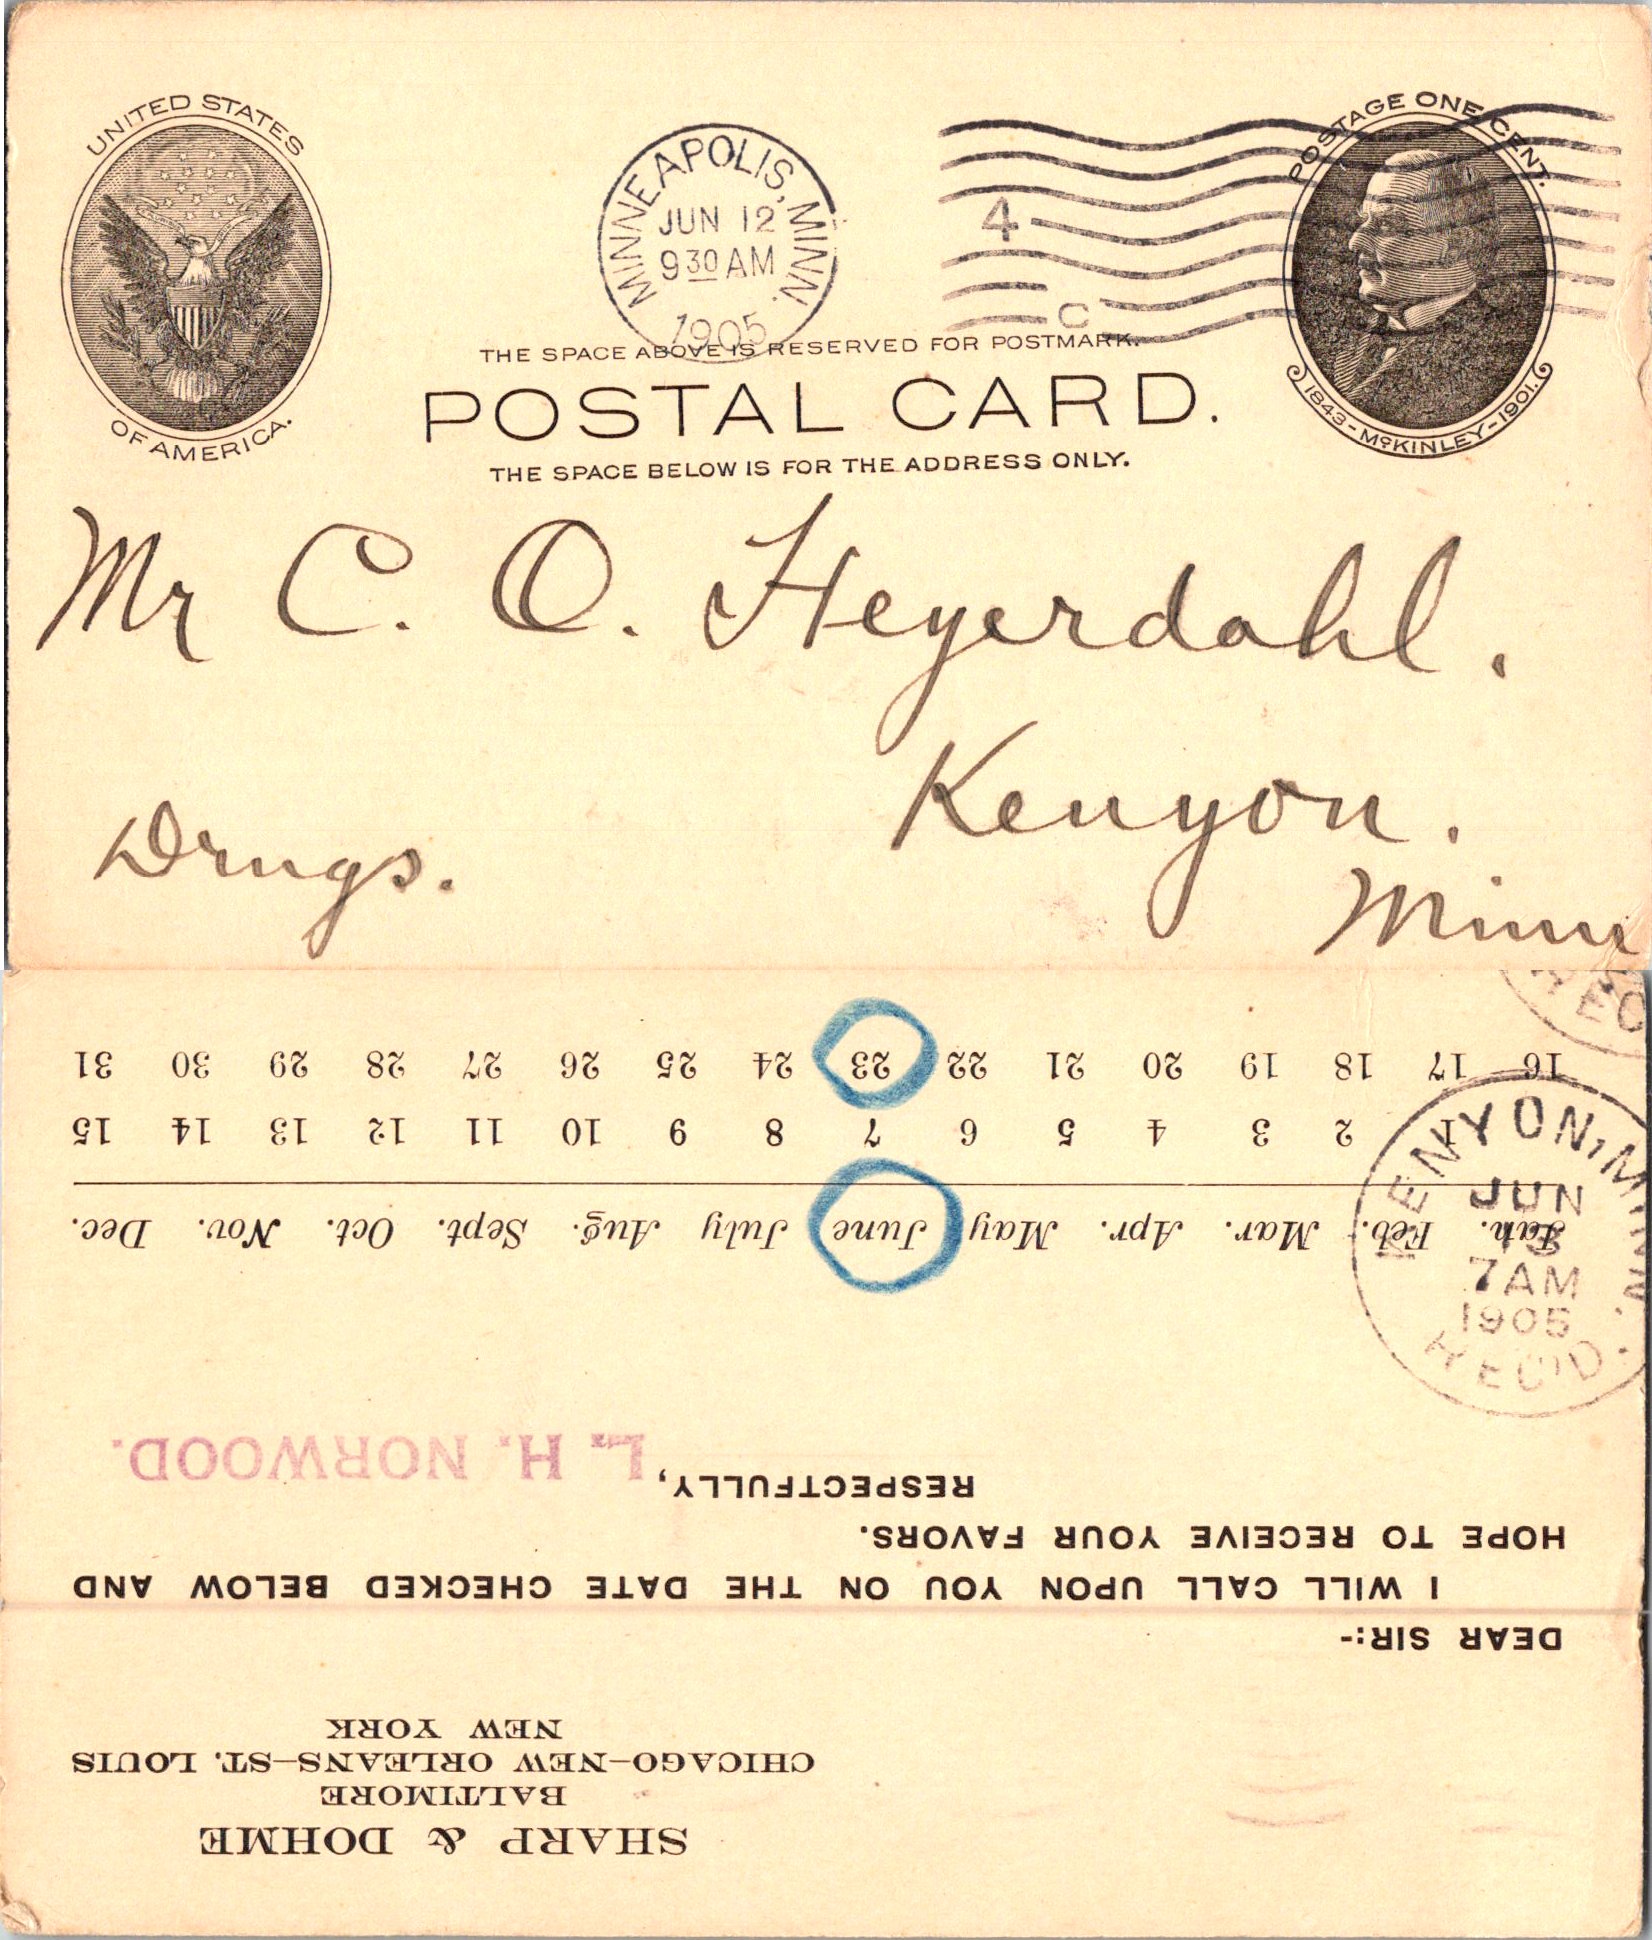 UNITED STATES
OF AMERICA.
MINNEAPOLIS, MINN.
JUN 12
9 30 AM
1905
4
C
POSTAGE ONE CENT.
1843-McKINLEY-1901.
THE SPACE ABOVE IS RESERVED FOR POSTMARK.
POSTAL CARD.
THE SPACE BELOW IS FOR THE ADDRESS ONLY.
Mr C. O. Heyerdahl.
Kenyon.
Drugs.
Minn
SHARP & DOHME
BALTIMORE
CHICAGO–NEW ORLEANS–ST. LOUIS
NEW YORK
DEAR SIR:-
I WILL CALL UPON YOU ON THE DATE CHECKED BELOW AND
HOPE TO RECEIVE YOUR FAVORS.
RESPECTFULLY,
L. H. NORWOOD.
Jan. Feb. Mar. Apr. May June July Aug. Sept. Oct. Nov. Dec.
1 2 3 4 5 6 7 8 9 10 11 12 13 14 15
16 17 18 19 20 21 22 23 24 25 26 27 28 29 30 31
KENYON, MINN.
JUN
13
7 AM
1905
REC'D.
REC